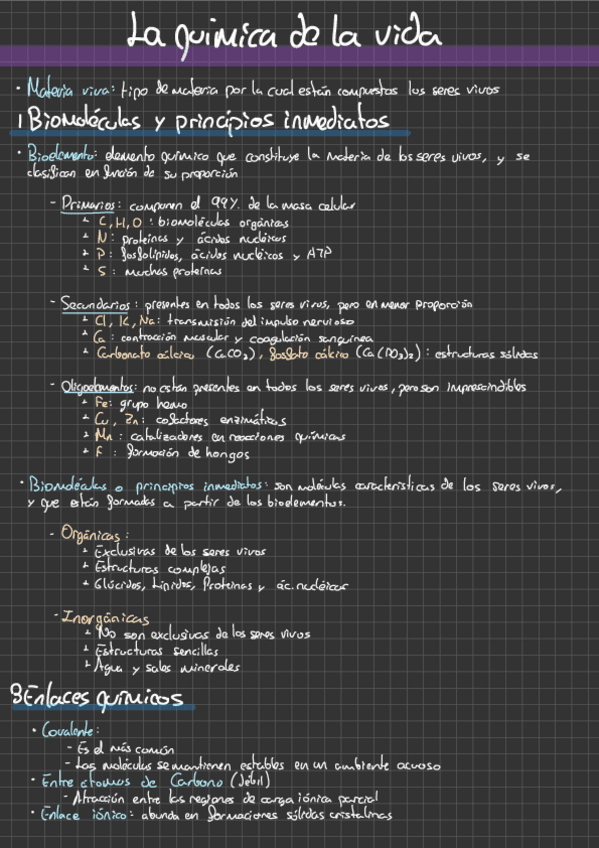 La química de la vida
· Materia viva: tipo de materia por la cual están compuestos los seres vivos
1 Biomoléculas y principios inmediatos
· Bioelemento: elemento químico que constituye la materia de los seres vivos, y se
clasifican en función de su proporción
- Primarios: componen el 99% de la masa celular
+ C, H, O: biomoléculas orgánicas
+ N: proteínas y ácidos nucleicos
+ P: fosfolípidos, ácidos nucleicos y ATP
+ S: muchas proteínas
- Secundarios: presentes en todos los seres vivos, pero en menor proporción
+ Cl, K, Na: transmisión del impulso nervioso
+ Ca: contracción muscular y coagulación sanguínea
+ Carbonato cálcico (CaCO3), fosfato cálcico (Ca(PO3)2): estructuras sólidas
- Oligoelementos: no están presentes en todos los seres vivos, pero son imprescindibles
+ Fe: grupo hemo
+ Cu, Zn: cofactores enzimáticos
+ Mn: catalizadores en reacciones químicas
+ F: formación de hongos
· Biomoléculas o principios inmediatos: son moléculas características de los seres vivos,
y que están formadas a partir de los bioelementos.
- Orgánicas:
+ Exclusivas de los seres vivos
+ Estructuras complejas
+ Glúcidos, Lípidos, Proteínas y ác. nucléicos
- Inorgánicas
+ No son exclusivas de los seres vivos
+ Estructuras sencillas
+ Agua y sales minerales
3 Enlaces químicos
· Covalente:
- Es el más común
- Las moléculas se mantienen estables en un ambiente acuoso
· Entre átomos de Carbono (débil)
- Atracción entre las regiones de carga iónica parcial
· Enlace iónico: abunda en formaciones sólidas cristalinas